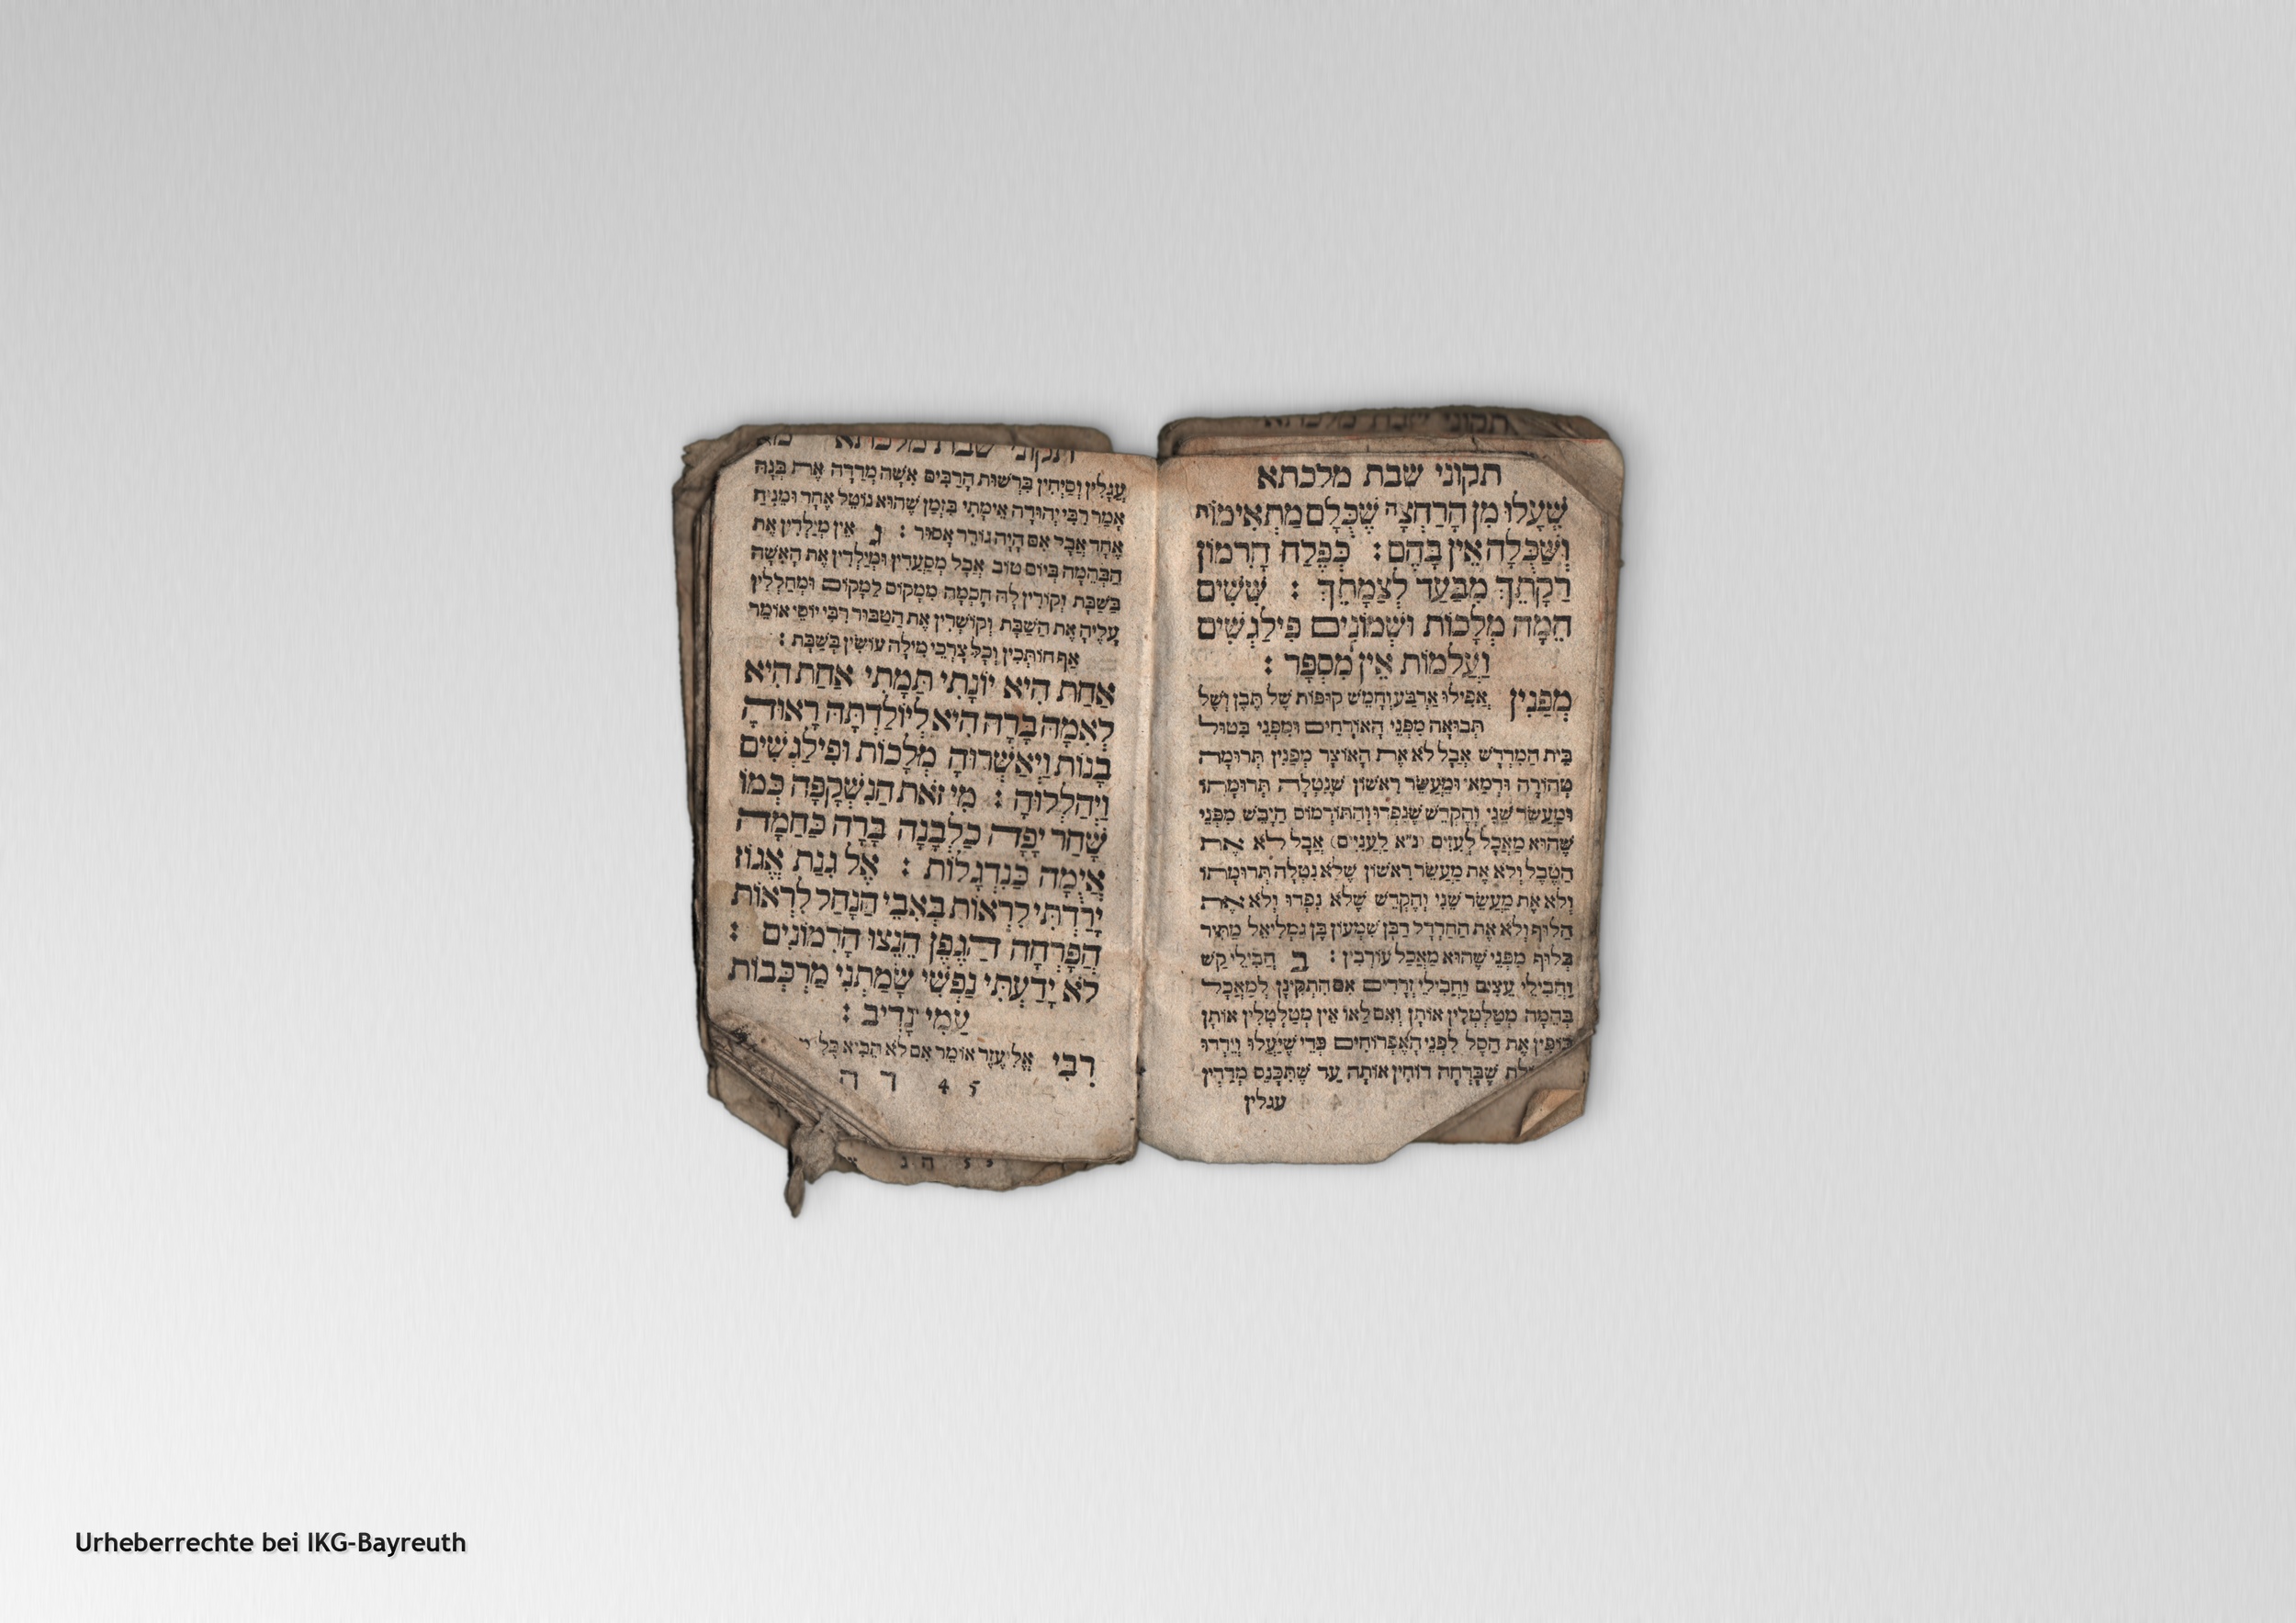 תקוני שבת מלכתא
שֶׁעָלוּ מִן הָרַחְצָה שֶׁכֻּלָּם מַתְאִימוֹת
וְשַׁכֻּלָה אֵין בָּהֶם : כְּפֶלַח הָרִמּוֹן
רַקָתֵךְ מִבַּעַד לְצַמָתֵךְ : שִׁשִׁים
הֵמָה מְלָכוֹת וּשְׁמוֹנִים פִּילַגְשִׁים
וַעֲלָמוֹת אֵין מִסְפָּר :
מְפַנִּין אֲפִילוּ אַרְבַּע וְחָמֵשׁ קוּפּוֹת שֶׁל תֶּבֶן וְשֶׁל
תְּבוּאָה מִפְּנֵי הָאוֹרְחִים וּמִפְּנֵי בִּטוּל
בֵּית הַמִדְרָשׁ אֲבָל לֹא אֶת הָאוֹצָר מְפַנִּין תְּרוּמָה
טְהוֹרָה וּדְמַאי וּמַעֲשֵׂר רִאשׁוֹן שֶׁנִטְלָה תְּרוּמָתוֹ
וּמַעֲשֵׂר שֵׁנִי וְהֶקְדֵשׁ שֶׁנִפְדוּ וְהַתּוּרְמוֹס הַיָבֵשׁ מִפְּנֵי
שֶׁהוּא מַאֲכָל לְעִזִים (נ״א לַעֲנִיִים) אֲבָל לֹא אֶת
הַטֶבֶל וְלֹא אֶת מַעֲשֵׂר רִאשׁוֹן שֶׁלֹא נִטְלָה תְּרוּמָתוֹ
וְלֹא אֶת מַעֲשֵׂר שֵׁנִי וְהֶקְדֵשׁ שֶׁלֹא נִפְדוּ וְלֹא אֶת
הַלוּף וְלֹא אֶת הַחַרְדָל רַבָּן שִׁמְעוֹן בֶּן גַמְלִיאֵל מַתִּיר
בְּלוּף מִפְּנֵי שֶׁהוּא מַאֲכַל עוֹרְבִין : ב חֲבִילֵי קַשׁ
וַחֲבִילֵי עֵצִים וַחֲבִילֵי זְרָדִים אִם הִתְקִינָן לְמַאֲכַל
בְּהֵמָה מְטַלְטְלִין אוֹתָן וְאִם לַאו אֵין מְטַלְטְלִין אוֹתָן
כּוֹפִין אֶת הַסַל לִפְנֵי הָאֶפְרוֹחִים כְּדֵי שֶׁיַעֲלוּ וְיֵרְדוּ
שֶׁבָּרְחָה דוֹחִין אוֹתָהּ עַד שֶׁתִּכָּנֵס מְדַדִין
עגלין
תקוני שבת מלכתא מא
עֲגָלִין וְסַיָחִין בִּרְשׁוּת הָרַבִּים אִשָׁה מְדַדָה אֶת בְּנָהּ
אָמַר רַבִּי יְהוּדָה אֵימָתַי בִּזְמַן שֶׁהוּא נוֹטֵל אֶחָד וּמַנִיחַ
אֶחָד אֲבָל אִם הָיָה גוֹרֵר אָסוּר : ג אֵין מְיַלְדִין אֶת
הַבְּהֵמָה בְּיוֹם טוֹב אֲבָל מְסַעֲדִין וּמְיַלְדִין אֶת הָאִשָׁה
בְּשַׁבָּת וְקוֹרִין לָהּ חֲכָמָה מִמָקוֹם לְמָקוֹם וּמְחַלְלִין
עָלֶיהָ אֶת הַשַׁבָּת וְקוֹשְׁרִין אֶת הַטַבּוּר רַבִּי יוֹסֵי אוֹמֵר
אַף חוֹתְכִין וְכָל צָרְכֵי מִילָה עוֹשִׂין בְּשַׁבָּת :
אַחַת הִיא יוֹנָתִי תַּמָתִי אַחַת הִיא
לְאִמָהּ בָּרָה הִיא לְיוֹלַדְתָּהּ רָאוּהָ
בָנוֹת וַיְאַשְׁרוּהָ מְלָכוֹת וּפִילַגְשִׁים
וַיְהַלְלוּהָ : מִי זֹאת הַנִשְׁקָפָה כְּמוֹ
שָׁחַר יָפָה כַלְבָנָה בָּרָה כַּחַמָה
אֲיֻמָה כַּנִדְגָלוֹת : אֶל גִנַת אֱגוֹז
יָרַדְתִּי לִרְאוֹת בְּאִבֵּי הַנָחַל לִרְאוֹת
הֲפָרְחָה הַגֶפֶן הֵנֵצוּ הָרִמּוֹנִים :
לֹא יָדַעְתִּי נַפְשִׁי שָׂמַתְנִי מַרְכְּבוֹת
עַמִי נָדִיב :
רִבִּי אֱלִיעֶזֶר אוֹמֵר אִם לֹא הֵבִיא כְּלִי
5 4 ד ה
Urheberrechte bei IKG-Bayreuth